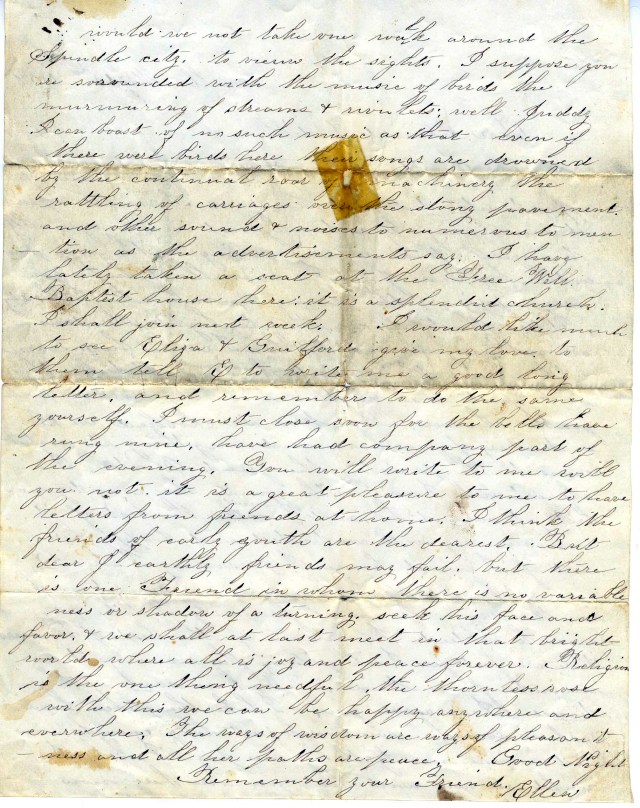 would we not take one walk around the
Spindle city. to view the sights. I suppose you
re sorounded with the music of birds the
murmuring of streams & rivulets; well Juddy
I can boast of no such music as that even if
there were birds here their songs are drowned
by the continual roar machinery the
rattling of carriages over the stony pavement.
and other sound & noises to numerous to men
-tion as the advertisements say. I have
lately taken a seat at the Free Will.
Baptist house here; it is a splendid church.
I shall join next week. I would like much
to see Eliza & Guilford give my love to
them tell E to write me a good long
letter, and remember to do the same
yourself. I must close soon for the bells have
rung nine, have had company part of
the evening. You will write to me will
you not. it is a great pleasure to me to have
letters from friends at home. I think the
friends of early youth are the dearest. But
dear J earthly friends may fail. but there
is one Friend in whom there is no variable
ness or shadow of a turning. seek his face and
favor, & we shall at last meet in that bright
world where all is joy and peace forever. Religion
is the one thing needful, the thornless rose
with this we can be happy anywhere and
everwhere. The ways of wisdom are ways of pleasant
-ness and all her paths are peace. Good Night
Remember your Friend.
Ellen